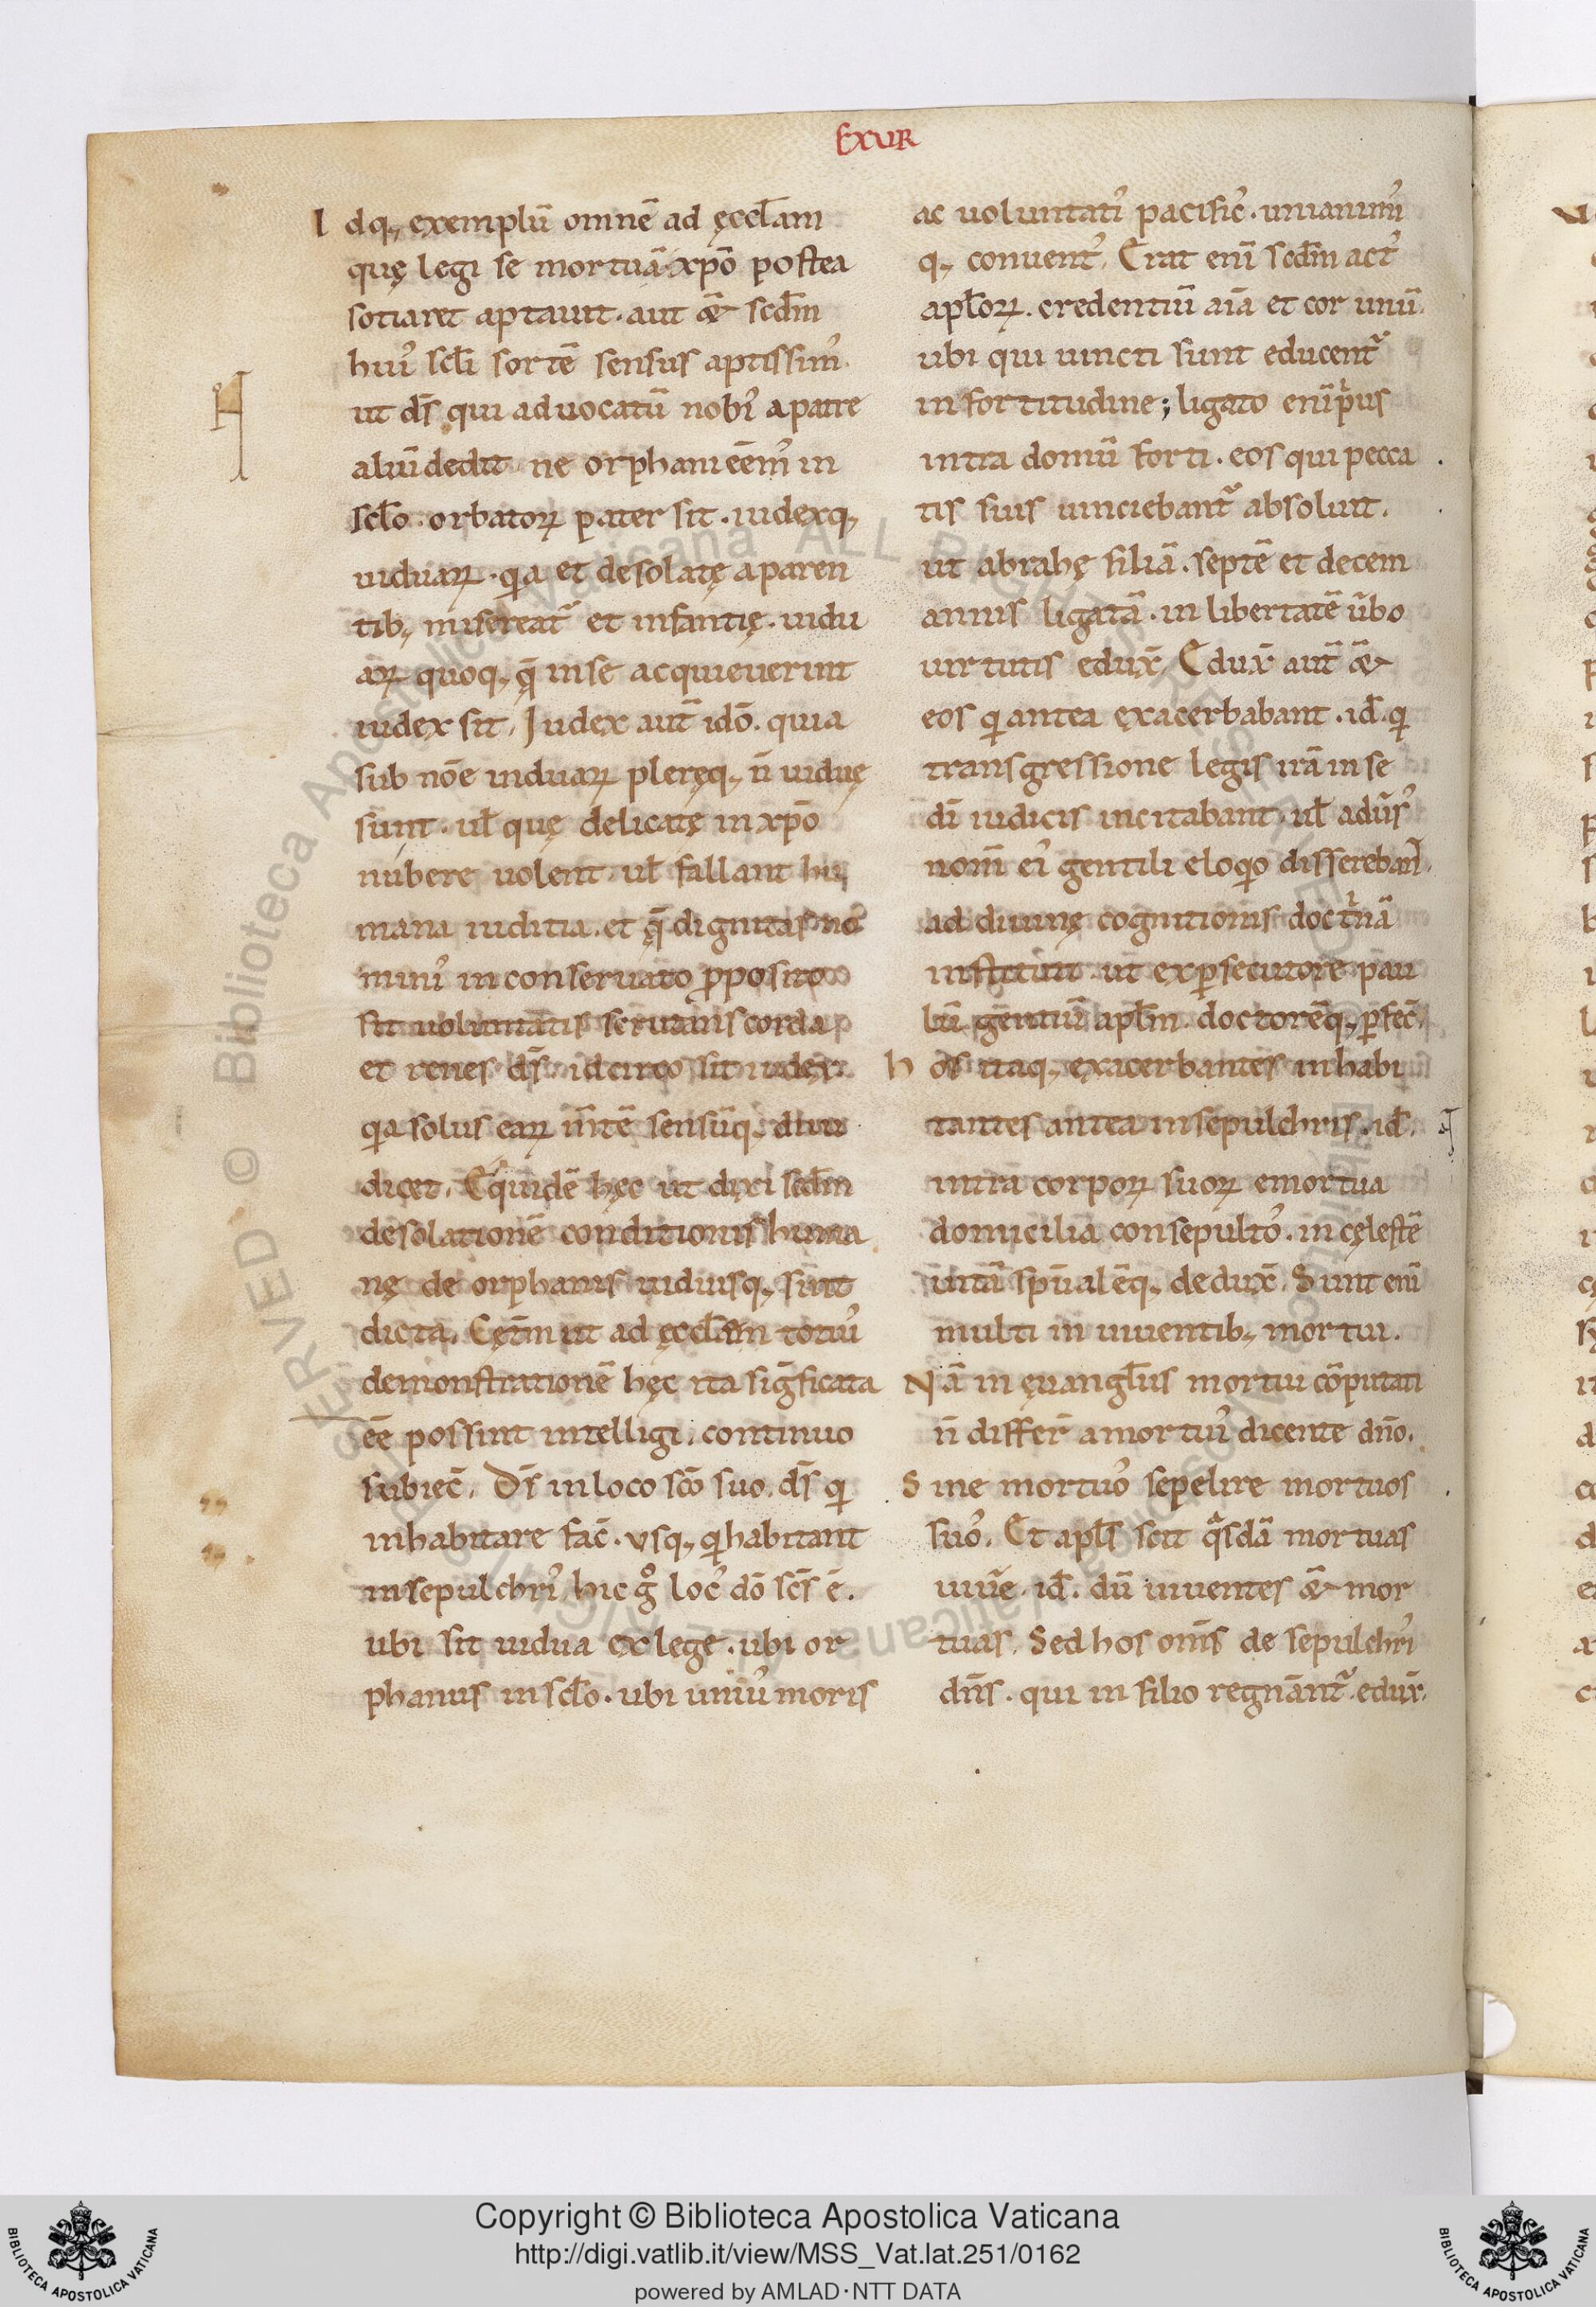 EXUR
Idq; exemplū omnē ad ęccl̄am
quę legi se mortuā xp̄o postea
sotiaret aptauit. aut &̄ scdm̄
hui᾽ scl̄i sortē sensus aptissim᾽.
ut d̄s qui aduocatū nobi᾽ a patre
aliū dedit ne orphani eēm᾽ in
scl̄o. orbatoꝝ pater sit. iudexq;
uiduaꝝ. qa et desolatę a paren
tib; misereat᷑ et infantię. uidu
aꝝ quoq; q̄ in se acquieuerint
iudex sit. Iudex aut̄ idō. quia
sub nōe uiduaꝝ pleręq; n̄ uiduę
sunt. ul̄ quę delicatę in xp̄o
nubere uolent. ul̄ fallant hu
mana iuditia. et q̄ dignitas no
mini᾽ in conseruato ꝓposito
sit uoluntatis scrutans corda
et renes d̄s idcirco sit iudex.
qa solus eaꝝ m̄tē sensūq; diiu
dicet. Equidē hęc ut dixi scdm̄
desolationē conditionis huma
nę de orphanis uiduisq; sint
dicta. Cęt̄m ut ad ęccl̄am totiu᾽
demonstrationē hęc ita sig̅ficata
eē possint intelligi. continuo
subiec̄. D̄s in loco sc̄o suo. d̄s qi
inhabitare fac̄. usq; qi habitant
in sepulchri᾽. hic gͦ loc᾽ dō sc̄s ē.
ubi sit uidua ex lege. ubi or
phanus in scl̄o. ubi uniu᾽ moris
ac uoluntati᾽ pacific᾽. unianimi᾽
q; conuent᾽. Erat enī scdm̄ act᾽
apl̄oꝝ. credentiū aīa et cor unū.
ubi qui uincti sunt educent᷑
in fortitudine; ligato enī pius
intra domū forti. eos qui pecca
tis suis uinciebant᷑ absoluit.
ut abrahę filiā. septē et decem
annis ligatā. in libertatē ūbo
uirtutis edux̄. Edux̄ aut̄ &̄
eos qi antea exacerbabant. id̄. qi
transgressione legis irā in se
dī iudicis incitabant. ul̄ adūs᾽
nom̄ ei᾽ gentili eloqio dissereban̄.
ad diuinę cognitionis doctinā
instituit. ut ex ꝑsecutore pau
lū gentiū apl̄m. doctorēq; ꝑfec̄.
hos itaq; exacerbantes inhabi
tantes antea in sepulchris. id̄.
intra corpoꝝ suoꝝ emortua
domicilia consepulto᾽. in cęlestē
uitā sp̄ualēq; dedux̄. Sunt enī
multi in uiuentib; mortui.
Nā in ęuangl̄iis mortui cōputati
n̄ differ̄ a mortui᾽ dicente dn̄o.
Sine mortuo᾽ sepelire mortuos
suo᾽. Et apl̄s scit qasdā mortuas
uiūe. id̄. dū uiuentes &̄ mor
tuas. Sed hos om̄s de sepulchri᾽
dn̄s. qui in filio regnānt᷑. edux̄.
Copyright © Biblioteca Apostolica Vaticana
http://digi.vatlib.it/view/MSS_Vat.lat.251/0162
powered by AMLAD·NTT DATA
BIBLIOTECA APOSTOLICA VATICANA
BIBLIOTECA APOSTOLICA VATICANA